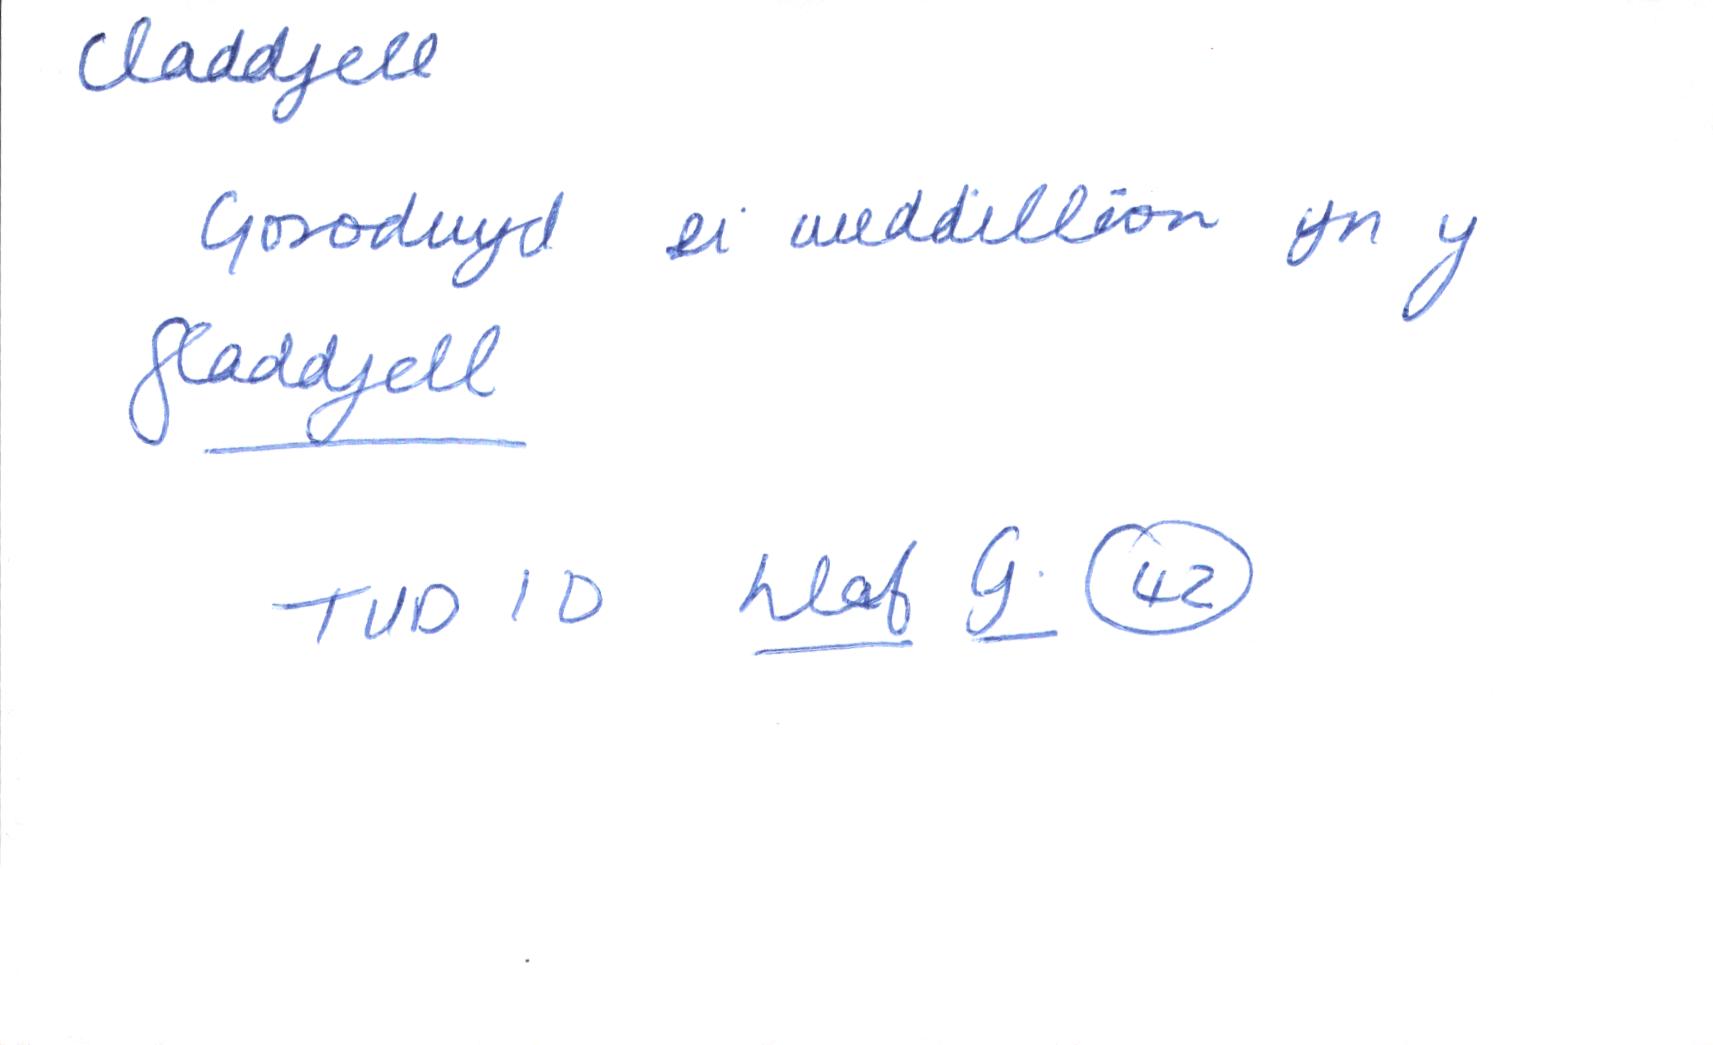 claddgell
Gosodwyd ei weddillion yn y
gladdgell
TUD 10 Llaf G. 42